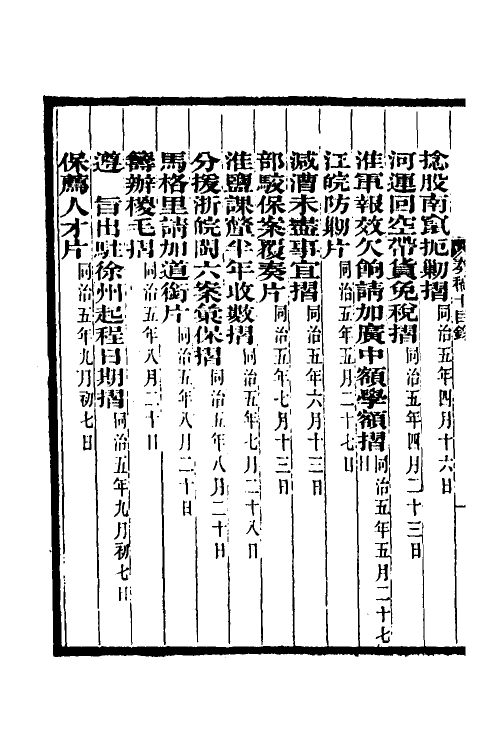 捻股南竄扼勦摺同治五年四月十六日
河運回空帶貨免稅摺同治五年四月二十三日
淮軍報效欠餉請加廣中額學額摺同治五年五月二十七日
江皖防勦片同治五年五月二十七日
減漕未盡事宜摺同治五年六月十三日
部駮保案覆奏片同治五年七月十三日
淮鹽課釐半年收數摺同治五年七月二十八日
分援浙皖閩六案彙保摺同治五年八月二十日
馬格里請加道銜片同治五年八月二十日
籌辦稷毛摺同治五年八月二十日
遵 旨出駐徐州起程日期摺同治五年九月初七日
保薦人才片同治五年九月初七日
奏稿十目錄
一